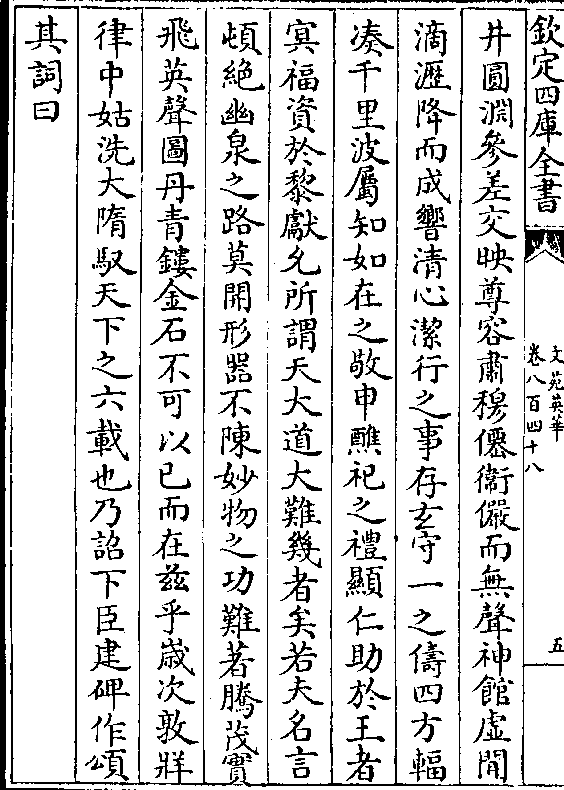 欽定四庫全書
文苑英華
卷八百四十八
五
井圓淵參差交映尊容肅穆僊衞儼而無聲神館虛閒
滴瀝降而成響清心潔行之事存玄守一之儔四方輻
凑千里波屬知如在之敬申醮祀之禮顯仁助於王者
㝠福資於黎獻允所謂天大道大難幾者矣若夫名言
頓絶幽泉之路莫開形器不陳妙物之功難著騰茂實
飛英聲圖丹青鏤金石不可以已而在兹乎嵗次敦牂
律中姑洗大隋馭天下之六載也乃詔下臣建碑作頌
其詞曰